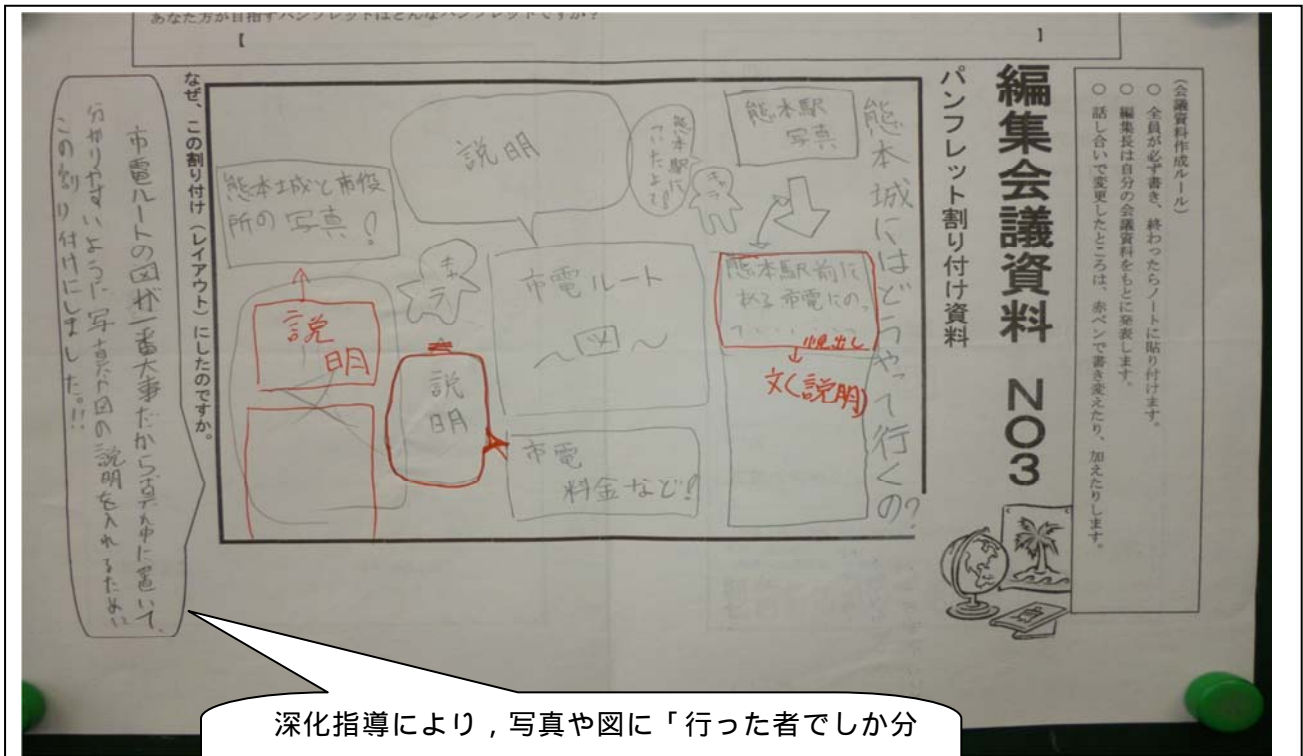 あなた方が目指すパンフレットはどんなパンフレットですか？
【　】
（会議資料作成ルール）
○　全員が必ず書き、終わったらノートに貼り付けます。
○　編集長は自分の会議資料をもとに発表します。
○　話し合いで変更したところは、赤ペンで書き変えたり、加えたりします。
編集会議資料　ＮＯ３
パンフレット割り付け資料
熊本城にはどうやって行くの？
熊本駅
写真
熊本駅に
ついたよ
キャラ
熊本駅前に
ある市電にのっ
て・・・・・
小見出し
文(説明)
説明
市電ルート
～図～
市電
料金など!
キャラ
説明
熊本城と市役
所の写真!
説明
なぜ、この割り付け（レイアウト）にしたのですか。
市電ルートの図が一番大事だから真ん中に置いて、
分かりやすいように写真や図の説明を入れるために
この割り付けにしました。!!
深化指導により，写真や図に「行った者でしか分